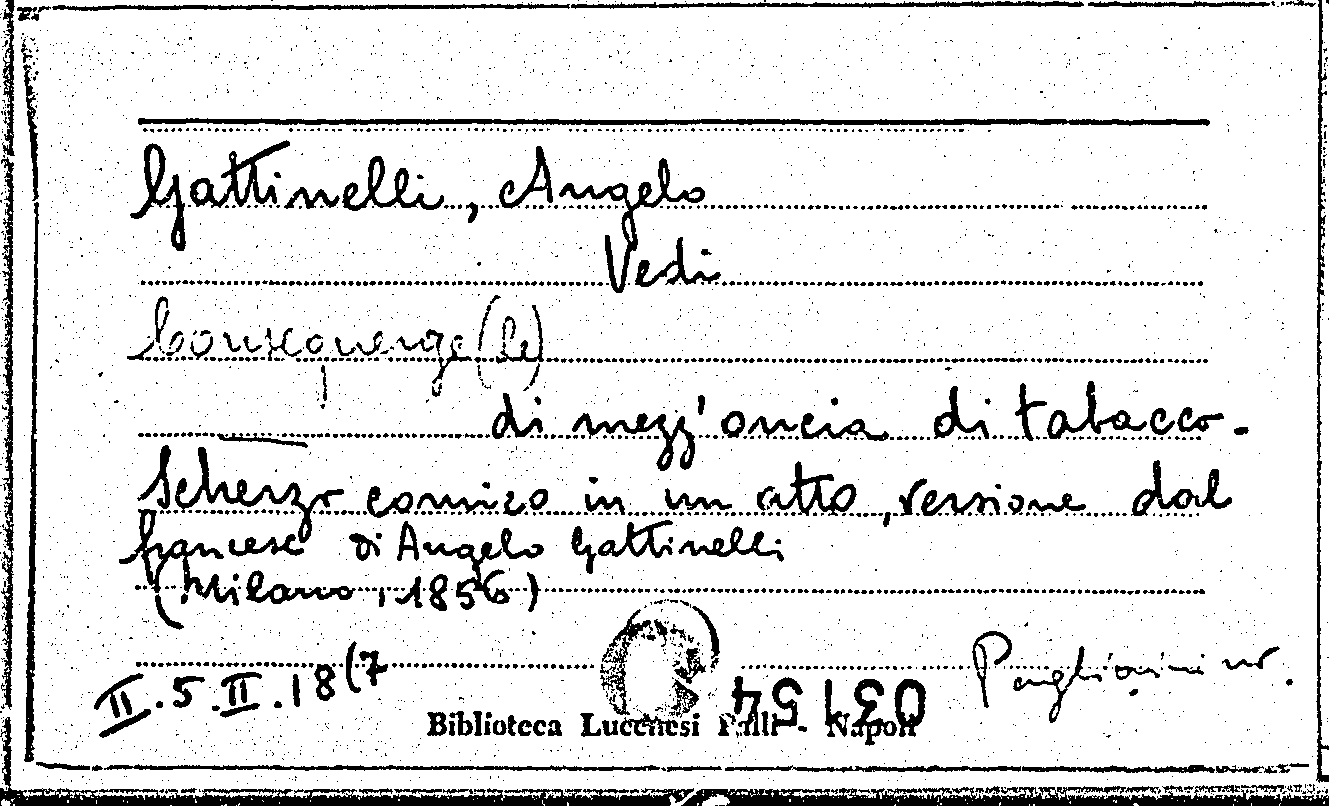 Gattinelli, Angelo
Vedi
Conseguenze (Le)
di mezz'oncia di tabacco.
Scherzo comico in un atto, versione dal
francese di Angelo Gattinelli
(Milano, 1856)
II.5.II.18(7
03154
Biblioteca Lucchesi Palli - Napoli